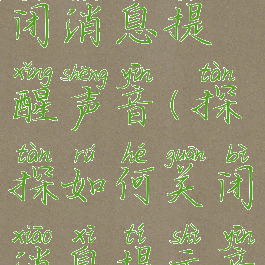 闭消息提
xǐng shēng yīn tàn
醒声音(探
tàn rú hé guān bì
探如何关闭
xiāo xī tí shì yīn
消息提示音